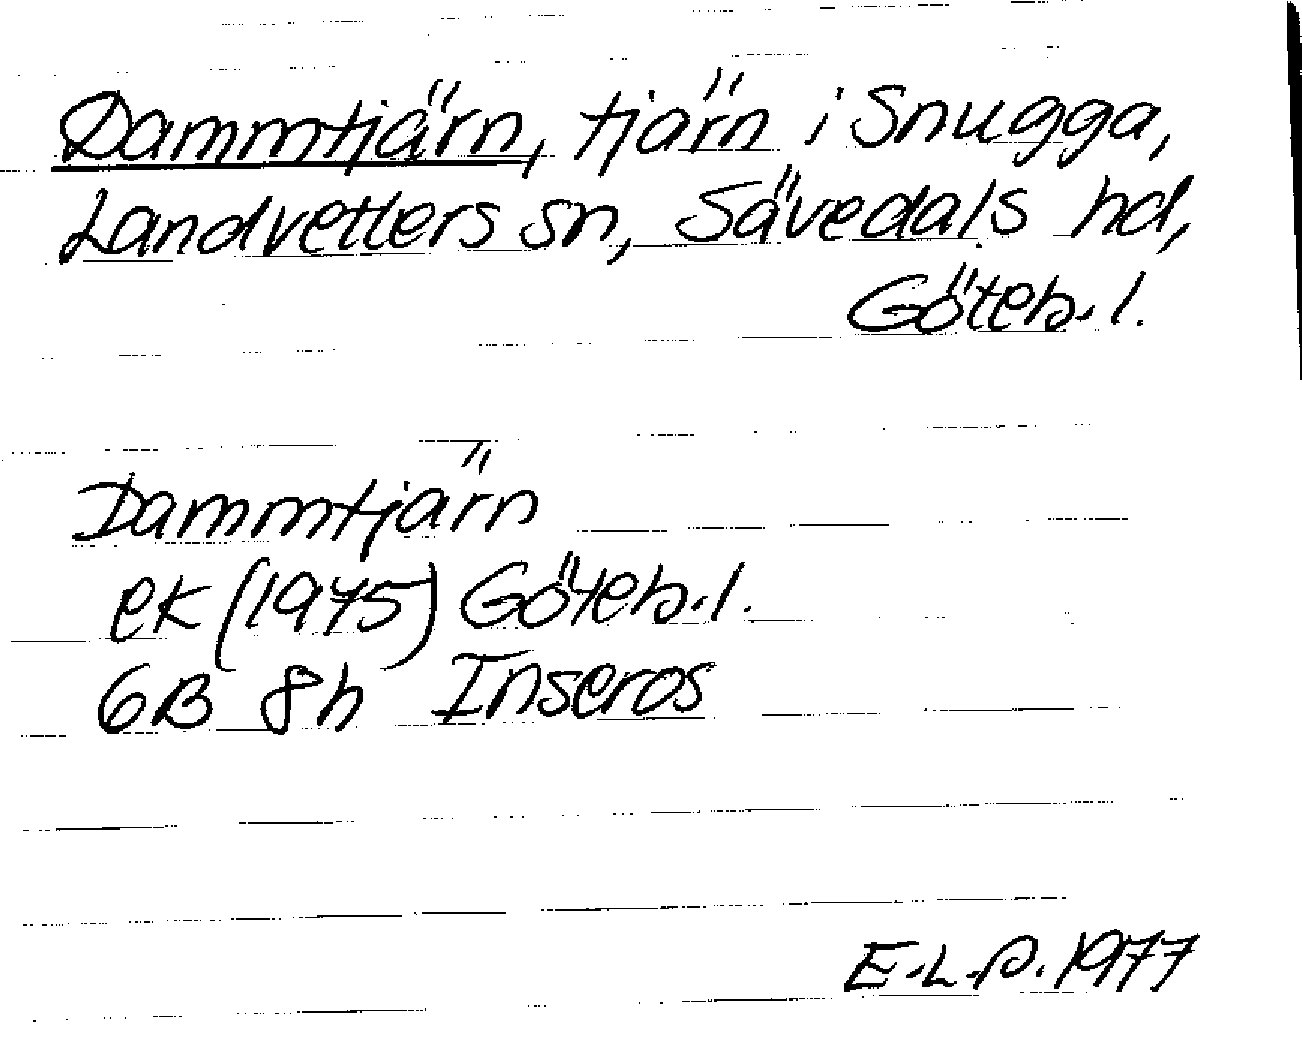 Dammtjärn, tjärn i Snugga,
Landvetters sn, Sävedals hd,
Göteb. l.
Dammtjärn
ek (1975) Göteb. l.
6B 8h Inseros
E.L.P. 1977